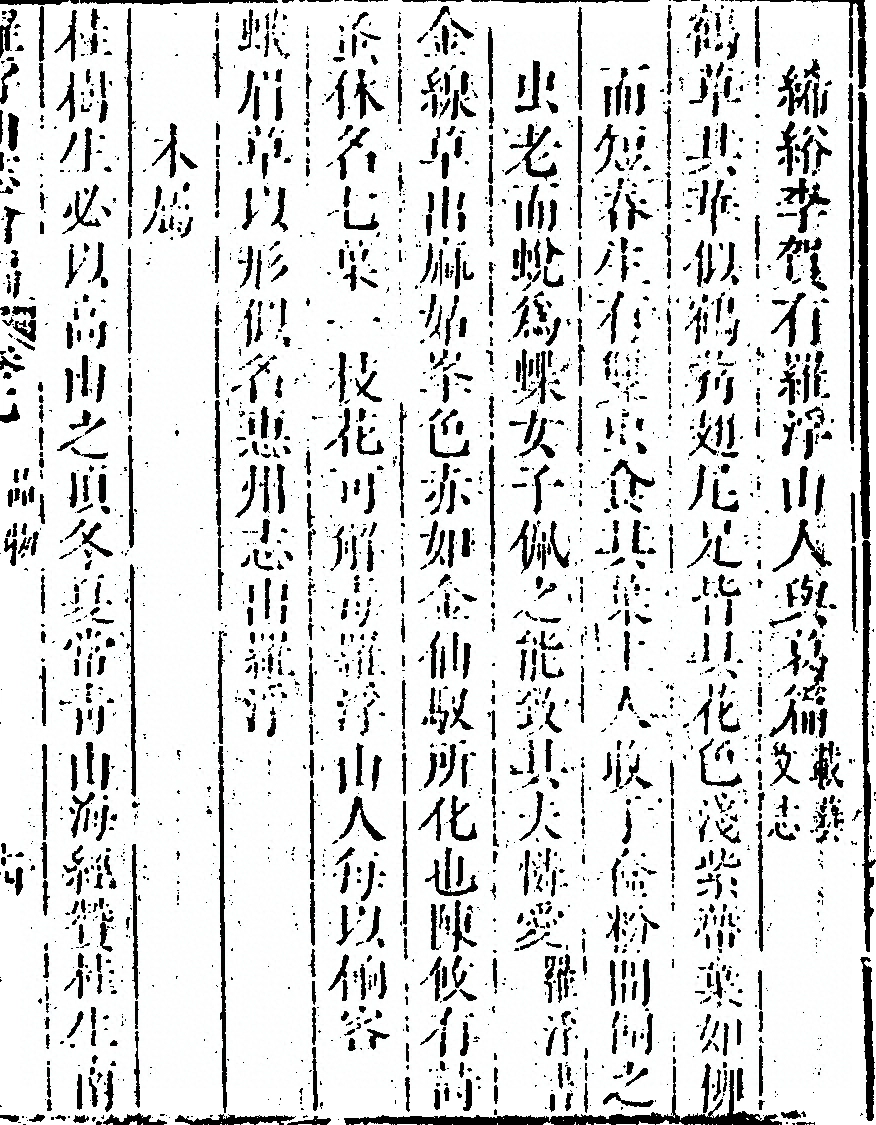 絺綌李賀有羅浮山人與葛篇載藝文志
鶴草其華似鶴觜翅尾足皆具花色淺紫蔕葉如柳
而短春生有雙虫食其葉土人收于奩粉間飼之
虫老而蛻爲蝶女子佩之能致其夫憐愛羅浮書
金線草出麻姑峯色赤如金仙馭所化也陳攸有詩
蚤休名七葉一枝花可解毒羅浮山人每以餉客
蛾眉草以形似名惠州志出羅浮
木屬
桂樹生必以高山之頂冬夏常靑山海經贊桂生南
羅浮山志會編 卷七 品物